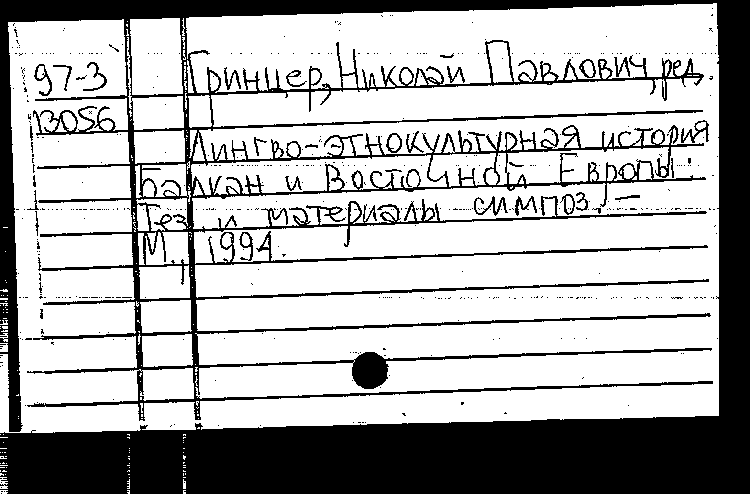 97-3 Гринцер, Николай Павлович, ред.
13056
Лингво-этнокультурная история
Балкан и Восточной Европы:
Тез. и материалы симпоз. –
М., 1994.